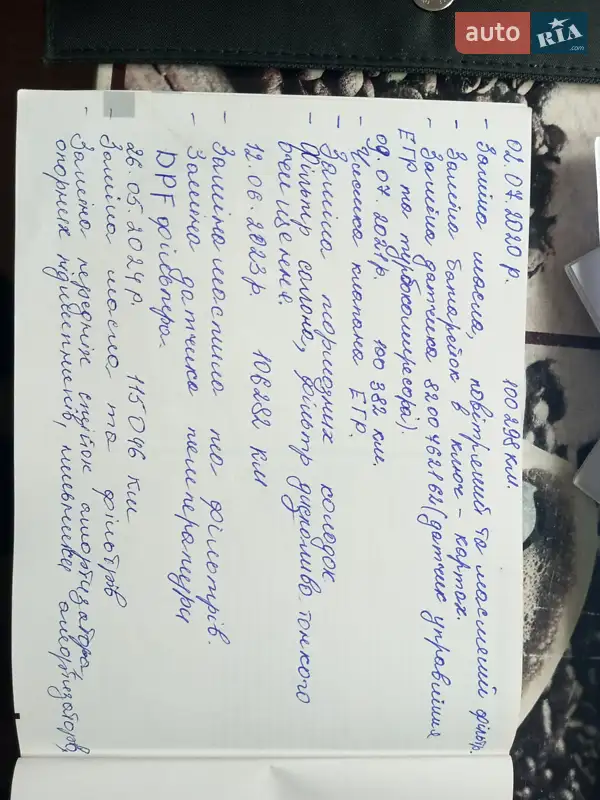 auto RIA .com
02.07.2020 р. 100 298 км.
- Заміна масла, повітряний та масляний фільтр.
- Заміна батарейок в ключ-картах.
- Заміна датчика 8200462862 (датчик управління
ЕГР та турбокомпресора).
09.07.2021р. 100 382 км.
- Чистка клапана ЕГР.
- Заміна тормозних колодок
- Фільтр салона, фільтр диз.топливо тонкого
очищення.
12.06.2023р. 106282 км
- Заміна мастила та фільтрів.
- Заміна датчика температури
DPF фільтра.
26.05.2024р. 115 046 км
- Заміна масла та фільтрів
- Заміна передніх стійок амортизатора,
опорних підшипників, пильників амортизаторів,